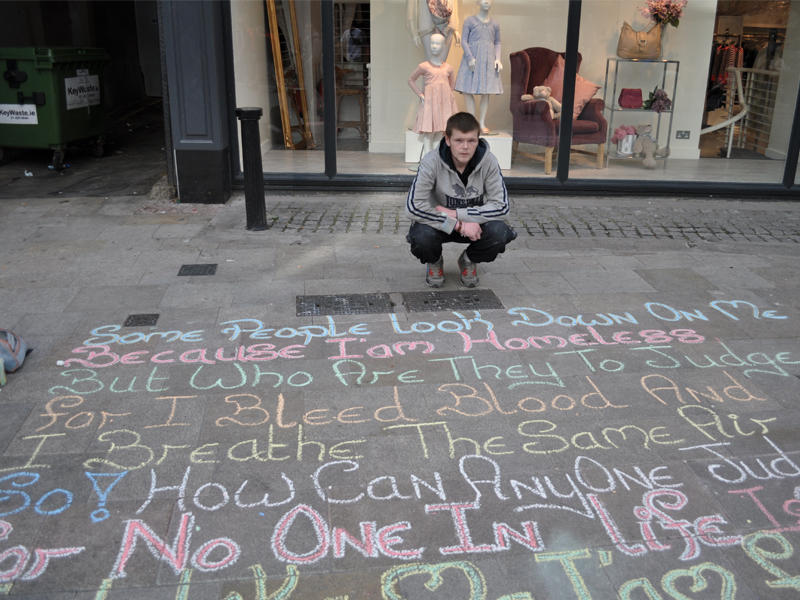 KeyWaste.ie
KeyWaste.ie
Some People Look Down On Me
Because I'am Homeless
But Who Are They To Judge
For I Bleed Blood And
I Breathe The Same Air
So! How Can AnyOne Jud
For No One In Life Is